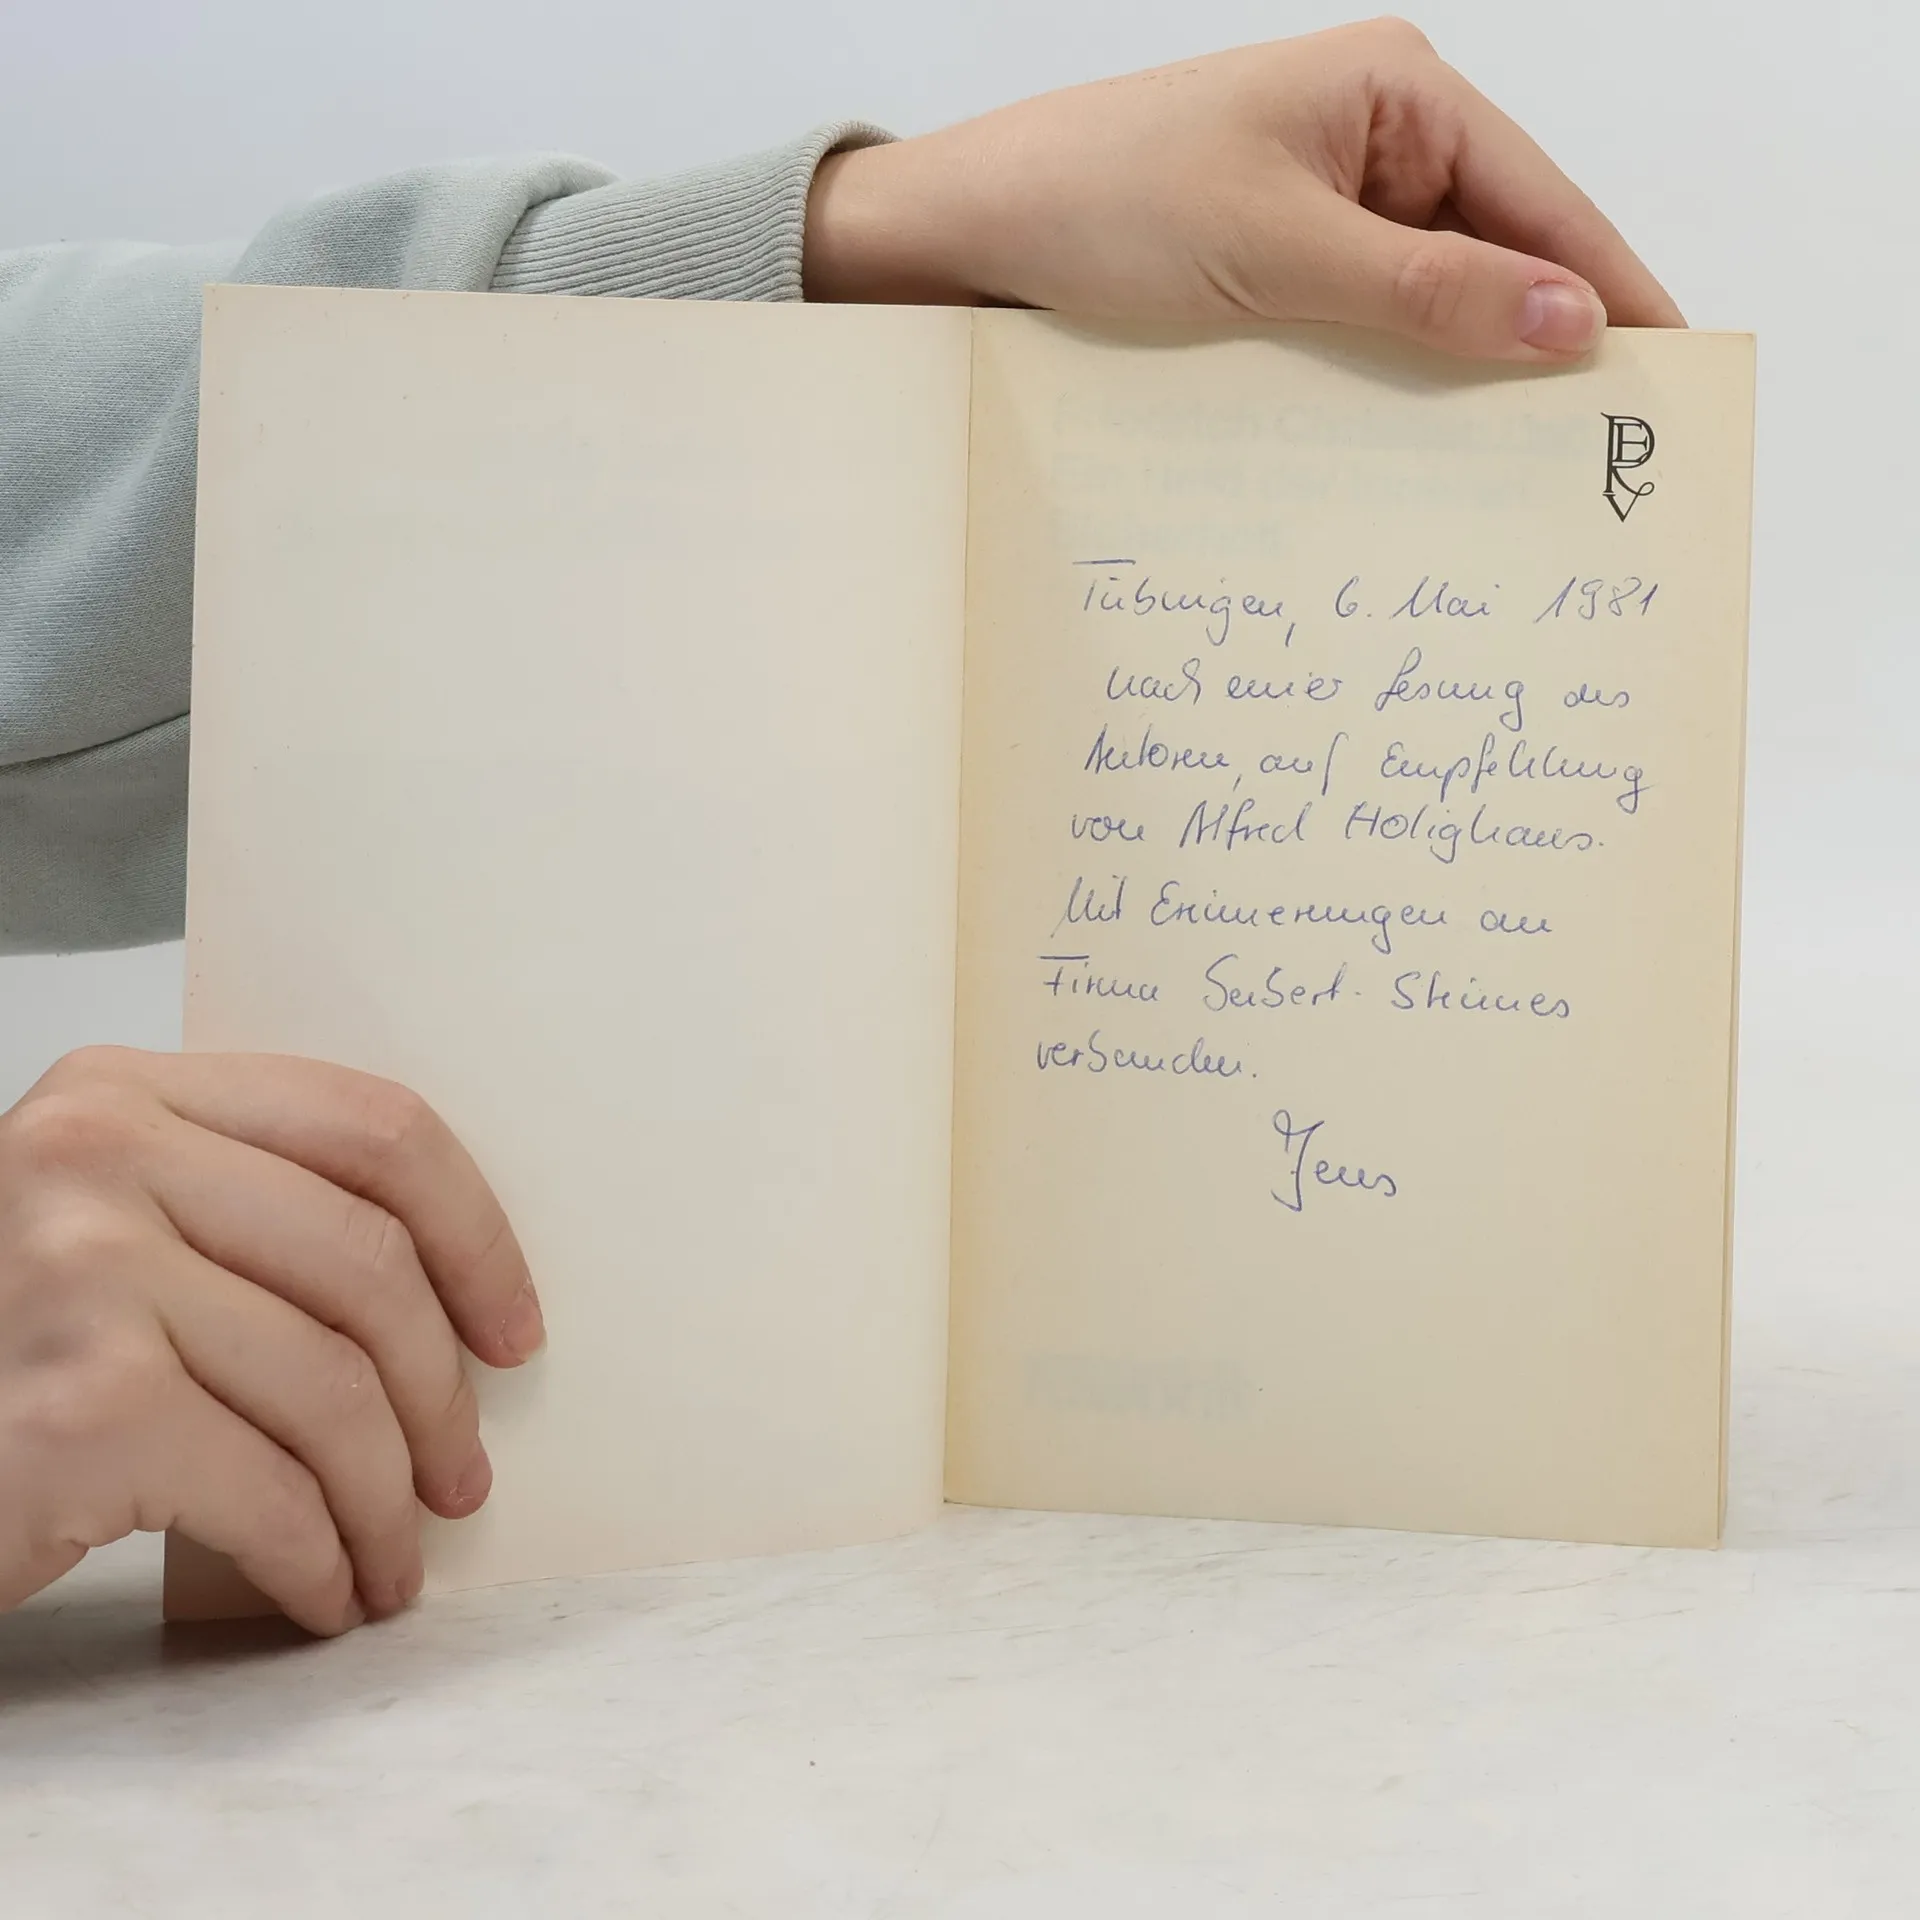 ERV
Tübingen, 6. Mai 1981
nach einer Lesung des
Autoren, auf Empfehlung
von Alfred Holighaus.
Mit Erinnerungen an
Firma Seibert-Stinnes
verbunden.
Jens